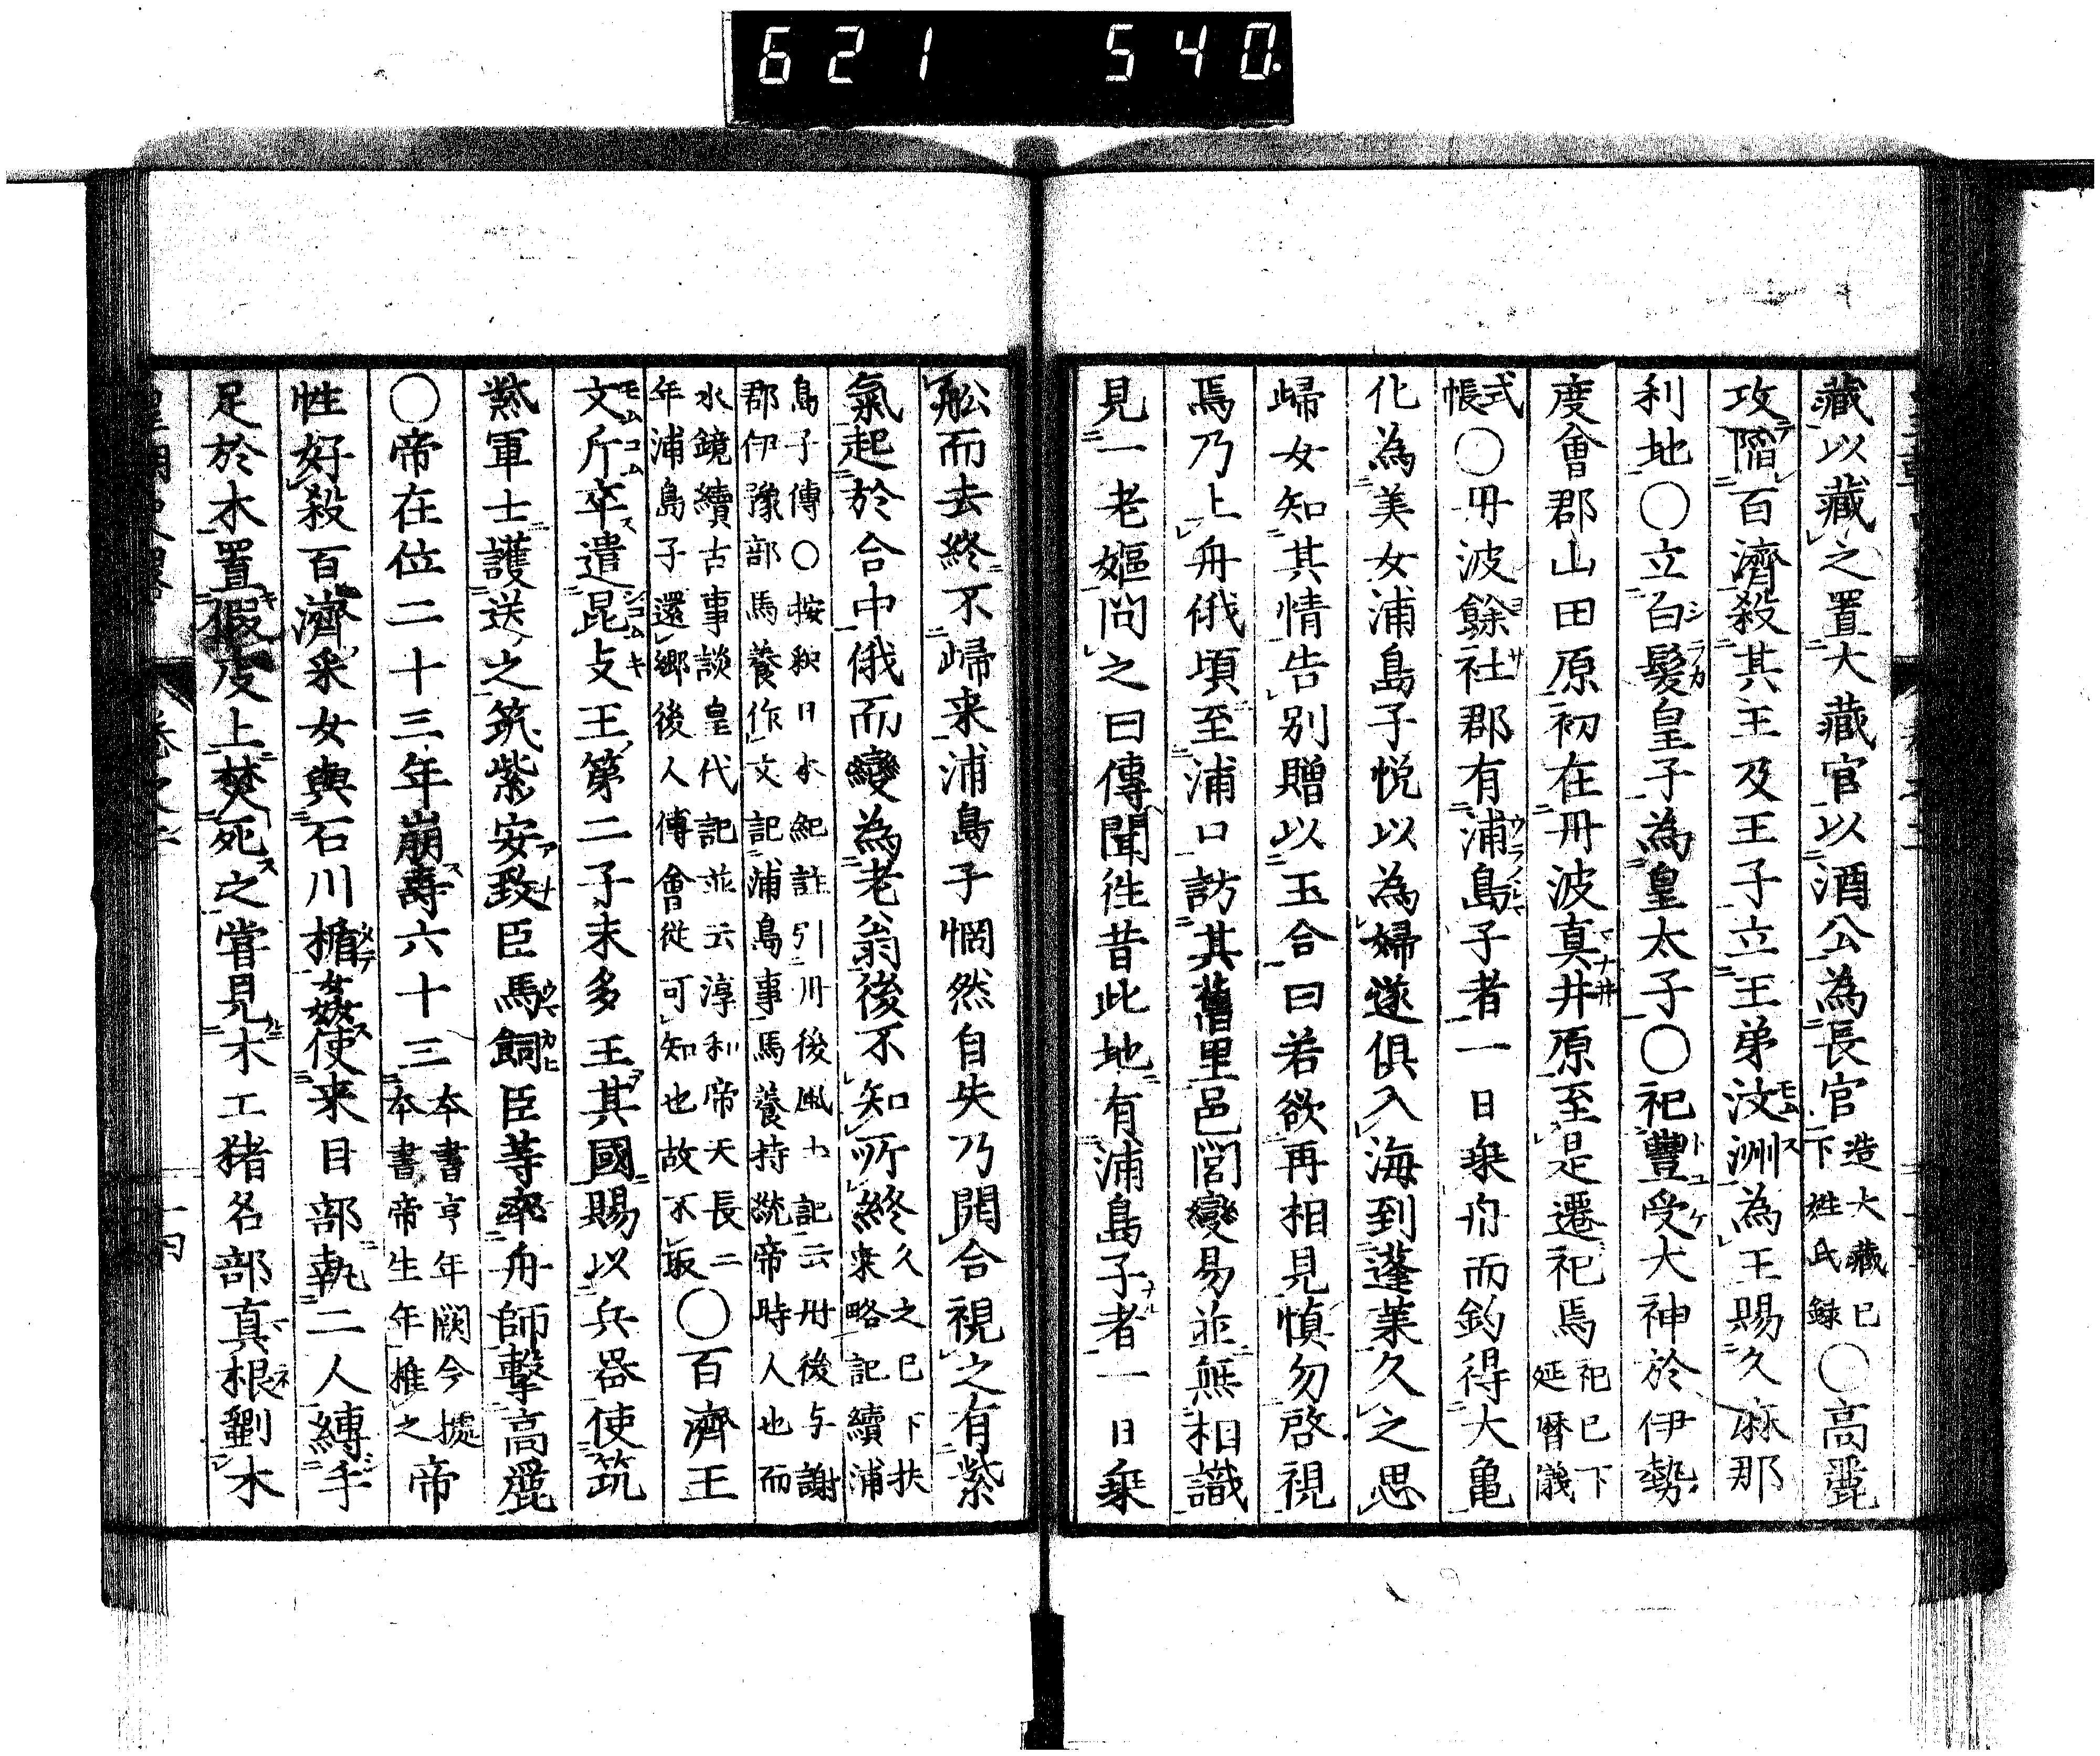 621 540.
藏以藏之置大藏官以酒公為長官造大藏已下姓氏録〇高麗
攻陷百濟殺其王及王子立王弟汶洲為王賜久麻那
利地〇立白髮皇子為皇太子〇祀豐受大神於伊勢
度會郡山田原初在丹波真井原至是遷祀焉祀已下延曆儀
式帳〇丹波餘社郡有浦島子者一日乘舟而釣得大亀
化為美女浦島子悦以為婦遂俱入海到蓬萊久之思
歸女知其情告別贈以玉合曰若欲再相見慎勿啓視
焉乃上舟俄頃至浦口訪其舊里邑閭變易並無相識
見一老嫗問之曰傳聞徃昔此地有浦島子者一日乘
舩而去終不歸来浦島子惘然自失乃開合視之有紫
氣起於合中俄而變為老翁後不知所終久之已下扶桒略記續浦
島子傳〇按釈日本紀註引丹後風土記云丹後与謝
郡伊豫部馬養作文記浦島事馬養持統帝時人也而
水鏡續古事談皇代記並云淳和帝天長二
年浦島子還鄉後人傳會從可知也故不取〇百濟王
文斤卒遣昆攴王第二子末多王其國賜以兵器使筑
紫軍士護送之筑紫安致臣馬飼臣等率舟師擊高麗
〇帝在位二十三年崩壽六十三本書亨年闕今據本書帝生年推之帝
性好殺百濟采女與石川楯姦使来目部執二人縛手
足於木置假庋上焚死之嘗見木工猪名部真根劉木